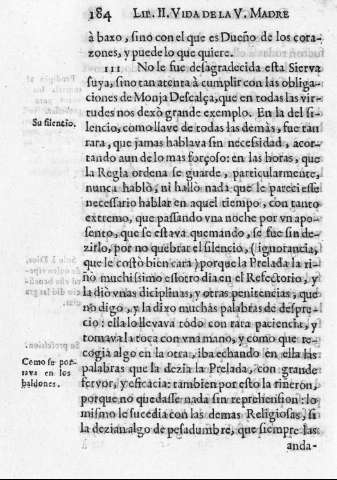 184 LIB. II. VIDA DE LA V. MADRE
à baxo, sino con el que es Dueño de los cora-
zones, y puede lo que quiere.
111 No le fue desagradecida esta Sierva
suya, sino tan atenta à cumplir con las obliga-
ciones de Monja Descalça, que en todas las vir-
tudes nos dexò grande exemplo. En la del si-
Su silencio.
lencio, como llave de todas las demàs, fue tan
rara, que jamas hablava sin necessidad, acor-
tando aun de lo mas forçoso: en las horas, que
la Regla ordena se guarde, particularmente,
nunca hablò, ni hallò nada que le pareciesse
necessario hablar en aquel tiempo, con tanto
extremo, que passando vna noche por vn apo-
sento, que se estava quemando, se fue sin de-
zirlo, por no quebrar el silencio, (ignorancia,
que le costò bien cara) porque la Prelada la ri-
ñò muchissimo estotro dia en el Refectorio, y
la diò vnas diciplinas, y otras penitencias, que
no digo, y la dixo muchas palabras de despre-
cio: ella lo llevava todo con rara paciencia, y
tomava la toca con vna mano, y como que re-
Como se por-
tava en los
baldones.
cogia algo en la otra, iba echando en ella las
palabras que la dezia la Prelada, con grande
fervor, y eficacia: tambien por esto la riñeron,
porque no quedasse nada sin reprehension: lo
mismo le sucedia con las demas Religiosas, si
la dezian algo de pesadumbre, que siempre las
anda-